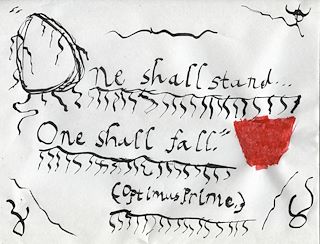 One shall stand...
One shall fall."
(Optimus Prime)